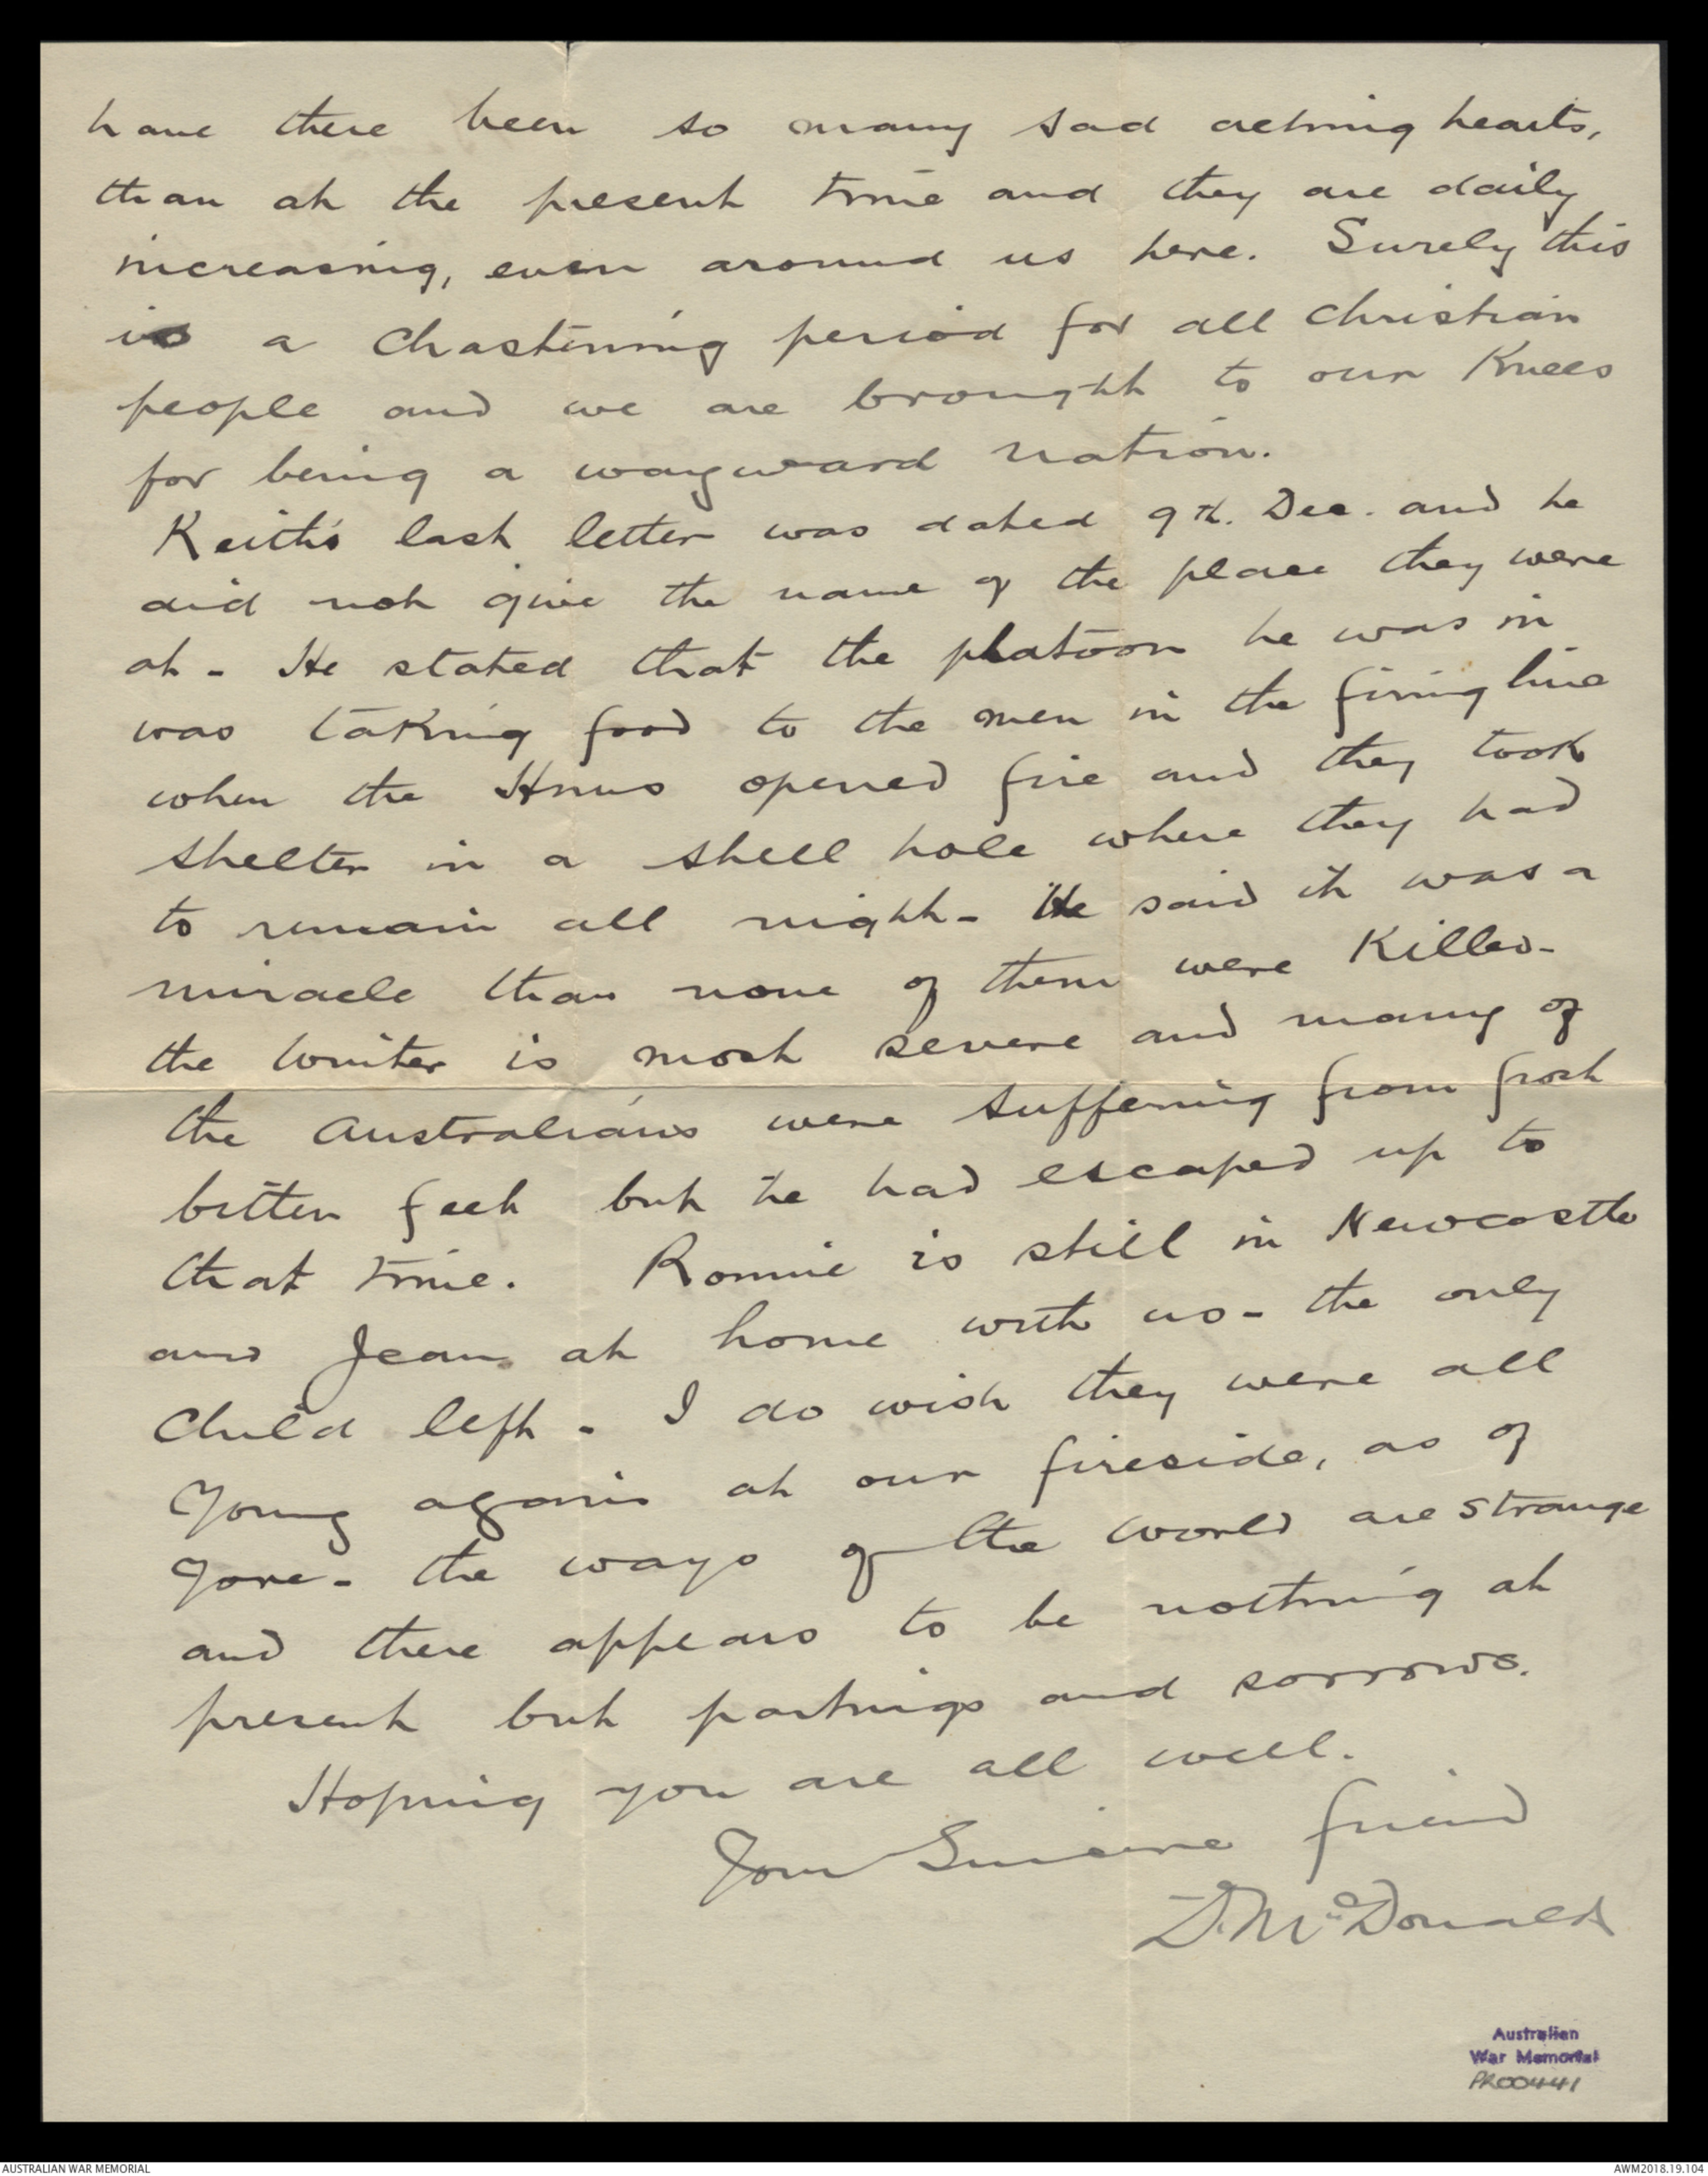 have there been so many sad aching hearts,
than at the present time and they are daily
increasing, even around us here. Surely this
is a chastening period for all Christian
people and we are brought to our Knees
for being a wayward nation.
Keith's last letter was dated 9th. Dec. and he
did not give the name of the place they were
at - He stated that the platoon he was in
was taking food to the men in the firing line
when the Huns opened fire and they took
shelter in a shell hole where they had
to remain all night - He said it was a
miracle than none of them were Killed -
the winter is most severe and many of
the Australians were suffering from frost
bitten feet but he had escaped up to
that time. Ronnie is still in Newcastle
and Jean at home with us - the only
Child left - I do wish they were all
Young again at our fireside, as of
Yore - the ways of the world are strange
and there appears to be nothing at
present but partings and sorrows.
Hoping you are all well.
Your Sincere friend
D. McDonald
Australian
War Memorial
PR00441
AUSTRALIAN WAR MEMORIAL
AWM2018.19.104